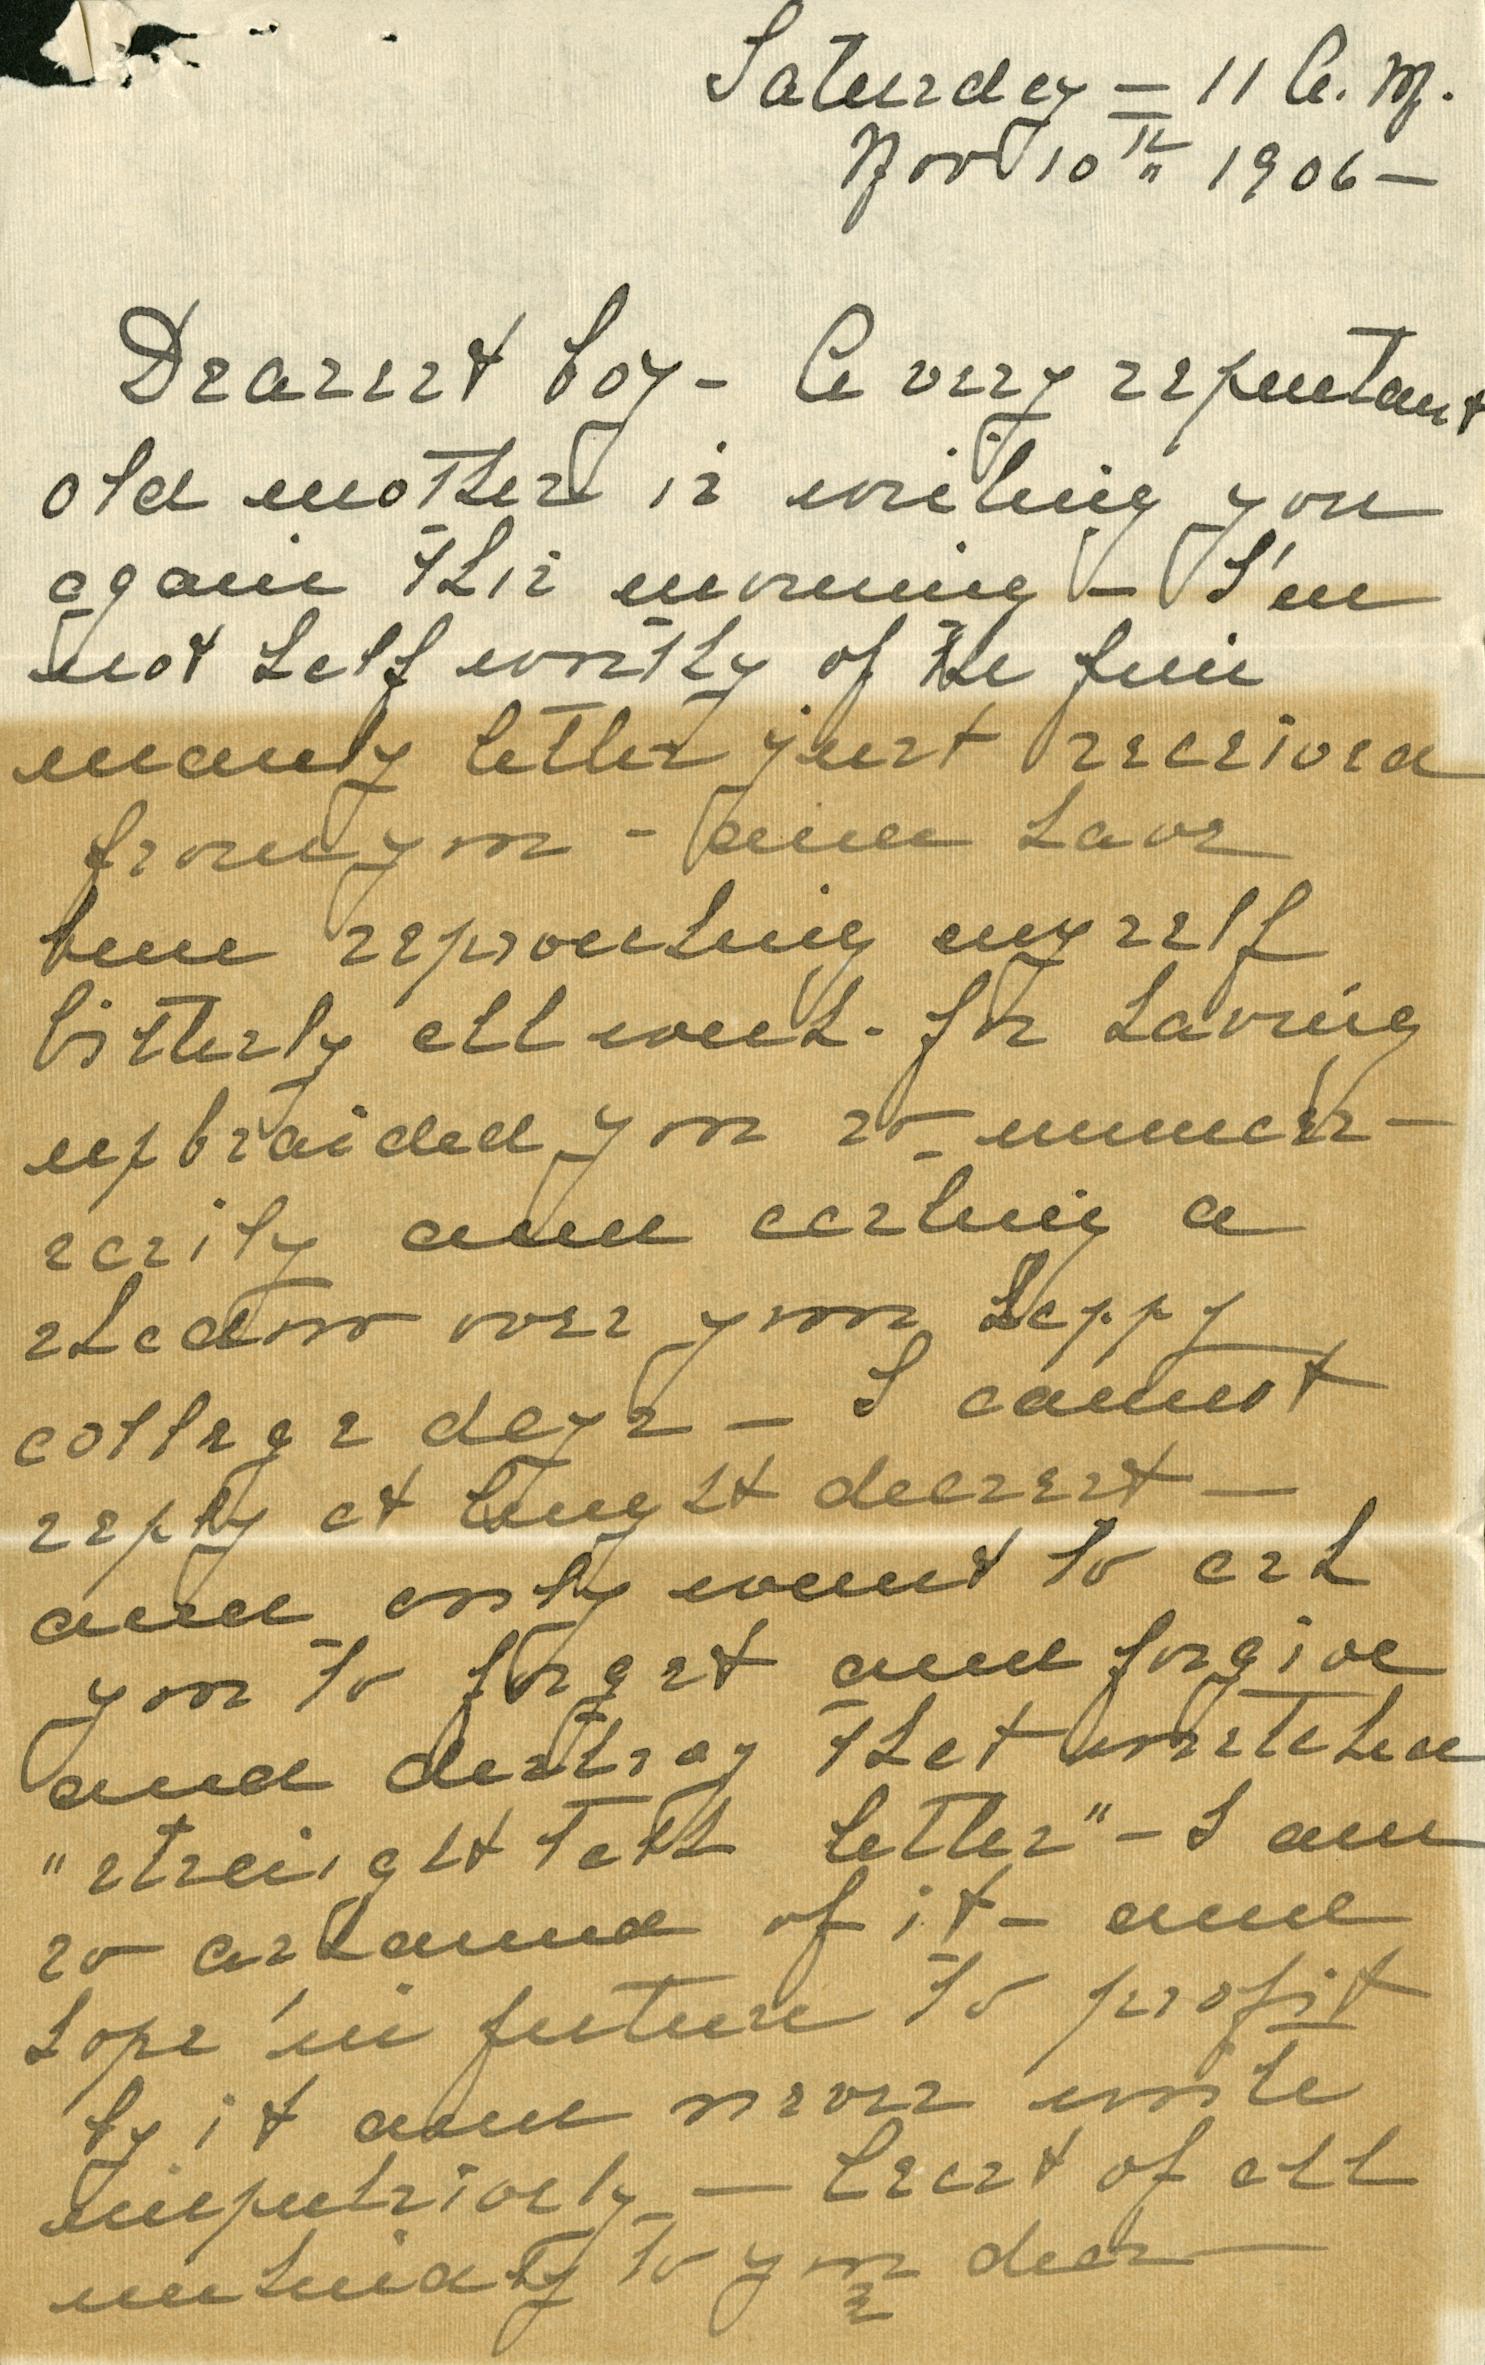 Saturday = 11 A.M.
Nov 10th 1906 —
Dearest boy - A very repentant
old mother is writing you
again this morning - I'm
not half worthy of the fine
manly letter just received
from you - and have
been reproaching myself
bitterly all week - for having
upbraided you so unneces-
sarily and casting a
shadow over your happy
college days — I cannot
reply at lenght dearest —
and only want to ask
you to forget and forgive
and destroy that wretched
"straight talk letter" - I am
so ashamed of it - and
hope in future to profit
by it and never write
impulsively — least of all
unkindly to you dear —